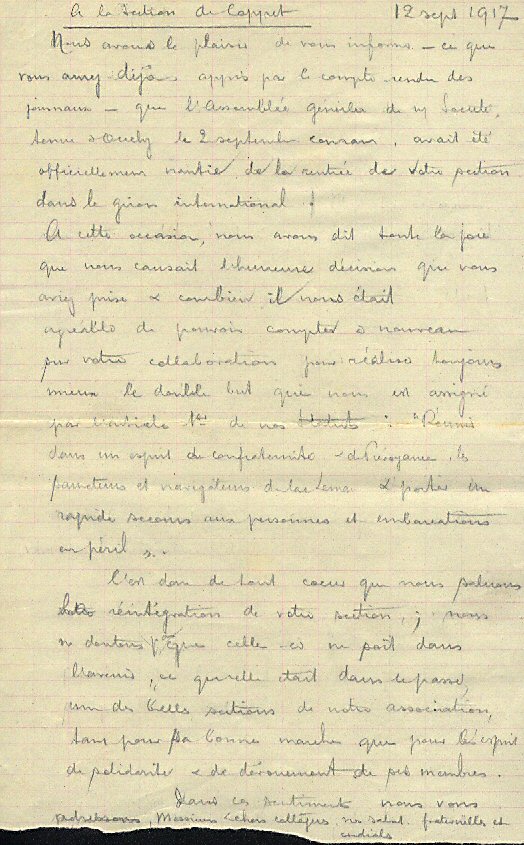 A la Section de Coppet 12 sept 1917
Nous avons le plaisir de vous informer – ce que
vous avez déjà appris par le compte-rendu des
journaux – que l'Assemblée générale de n/ Société,
tenue à Ouchy le 2 septembre courant, avait été
officiellement nantie de la rentrée de votre section
dans le giron international.
A cette occasion, nous avons dit toute la joie
que nous causait l'heureuse décision que vous
aviez prise & combien il nous était
agréable de pouvoir compter à nouveau
sur votre collaboration pour réaliser toujours
mieux le double but qui nous est assigné
par l'article 1er de nos statuts : "Réunir
dans un esprit de confraternité & de prévoyance, les
sauveteurs et navigateurs du lac Léman & porter un
rapide secours aux personnes et embarcations
en péril ".
C'est donc de tout coeur que nous saluons
réintégration de votre section, ; nous
ne doutons que celle-ci ne soit dans
l'avenir, ce qu'elle était dans le passé,
une des belles sections de notre association,
tant pour sa bonne marche que pour l'esprit
de solidarité & de dévouement de ses membres.
Dans ces sentiments nous vous
adressons, Messieurs & chers collègues, nos salut. fraternelles et
cordiales